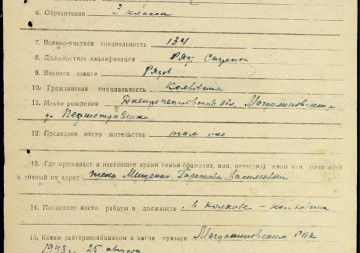 6. Образование 3 класса
7. Военно-учетная специальность 134
8. Должностная квалификация Ряд.
9. Военное звание Рядов
10. Гражданская специальность Колхозник
11. Место рождения Днепропетровская обл. Магдалиновский
12. Последнее место жительства там же
13. Где проживает в настоящее время семья (фамилия, имя, отчество) жены или
и точный их адрес жена Мищенко
14. Последнее место работы и должность в колхозе - колхозник
15. Каким райгорвоенкоматом и когда призван Магдалиновским РВК
1943 г. 25 августа